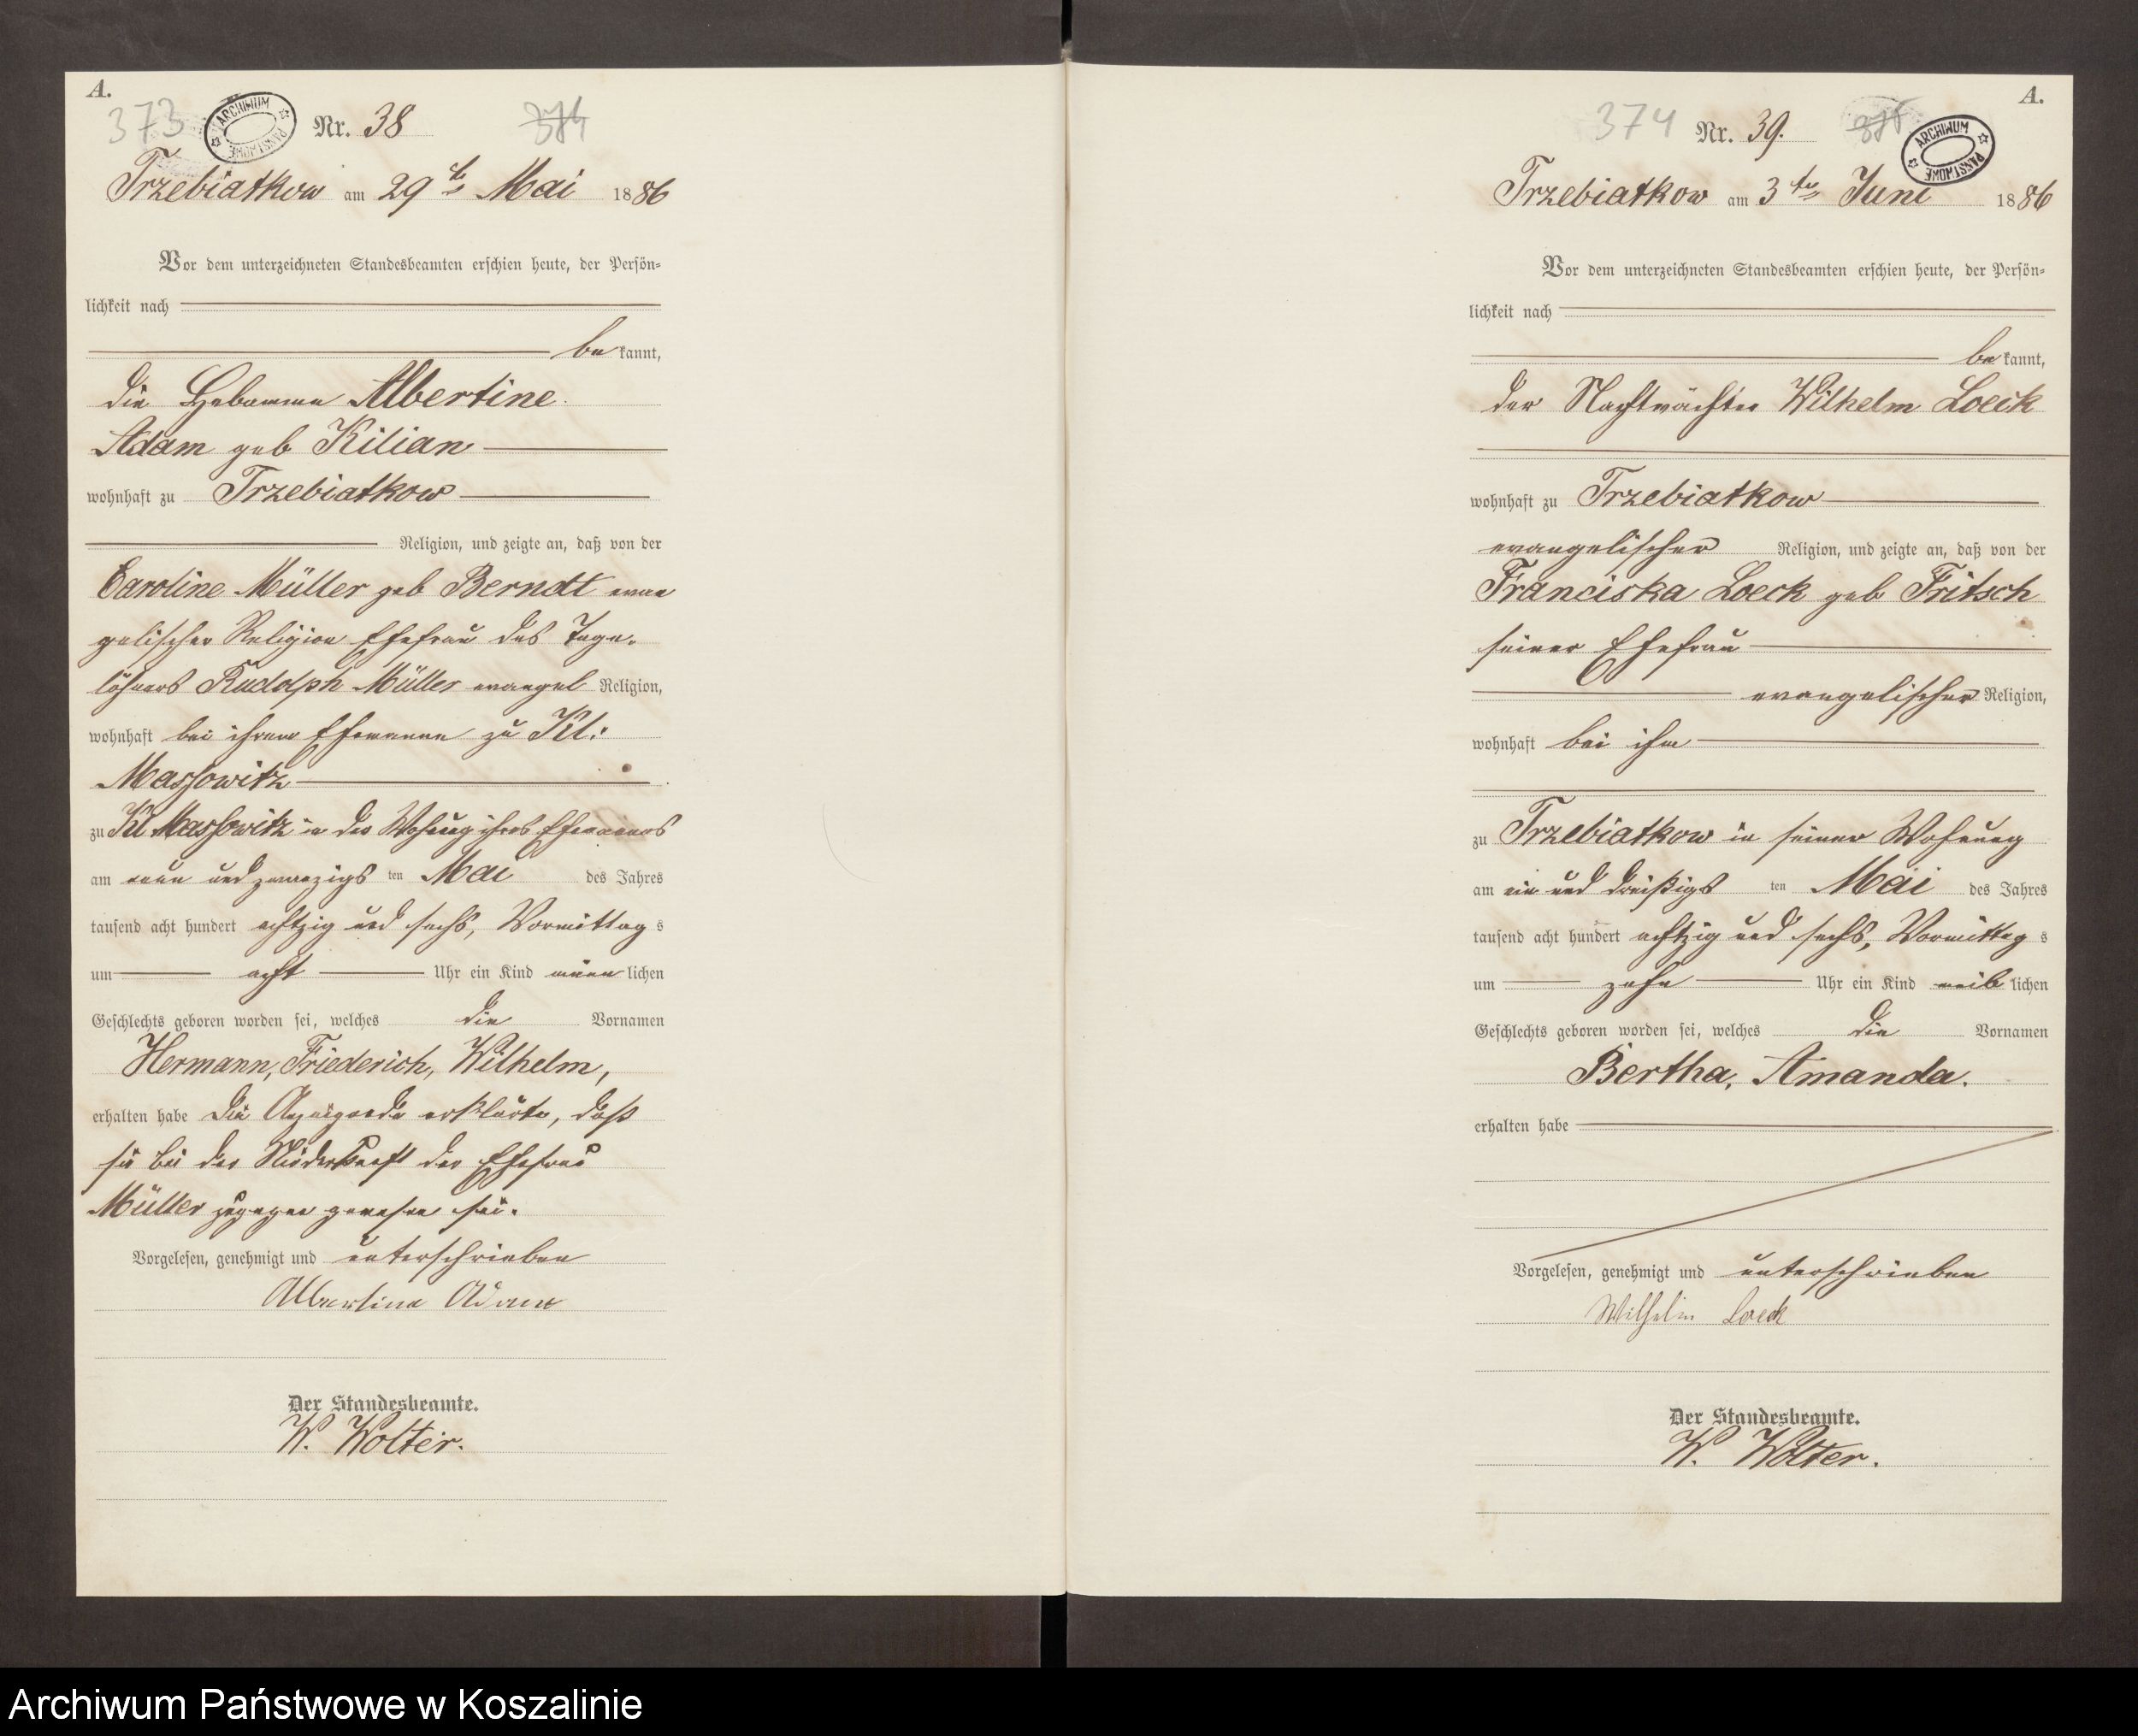 A.
373
ARCHIWUM PAŃSTWOWE
Nr. 38
374
Trzebiatkow am 29ten Mai 1886
Vor dem unterzeichneten Standesbeamten erschien heute, der Persön-
lichkeit nach
bekannt,
die Hebamme Albertine
Adam geb Kilian
wohnhaft zu Trzebiatkow
Religion, und zeigte an, daß von der
Caroline Müller geb Berndt evan
gelischer Religion Ehefrau des Tage-
löhners Rudolph Müller evangel Religion,
wohnhaft bei ihrem Ehemann zu Kl:
Massowitz
zu Kl Massowitz in der Wohnung ihres Ehemannes
am neun und zwanzigsten Mai des Jahres
tausend acht hundert achtzig und sechs, Vormittags
um acht Uhr ein Kind männlichen
Geschlechts geboren worden sei, welches die Vornamen
Hermann, Friederich, Wilhelm,
erhalten habe die Anzeigende erklärte, daß
sie bei der Niederkunft der Ehefrau
Müller zugegen gewesen sei.
Vorgelesen, genehmigt und unterschrieben
Albertine Adam
Der Standesbeamte.
W. Wolter.
A.
374
Nr. 39.
375
ARCHIWUM PAŃSTWOWE
Trzebiatkow am 3ten Juni 1886
Vor dem unterzeichneten Standesbeamten erschien heute, der Persön-
lichkeit nach
bekannt,
der Nachtwächter Wilhelm Loeck
wohnhaft zu Trzebiatkow
evangelischer Religion, und zeigte an, daß von der
Franciska Loeck geb Fritsch
seiner Ehefrau
evangelischer Religion,
wohnhaft bei ihm
zu Trzebiatkow in seiner Wohnung
am ein und dreißigsten Mai des Jahres
tausend acht hundert achtzig und sechs, Vormittags
um zehn Uhr ein Kind weiblichen
Geschlechts geboren worden sei, welches die Vornamen
Bertha, Amanda.
erhalten habe
Vorgelesen, genehmigt und unterschrieben
Wilhelm Loeck
Der Standesbeamte.
W. Wolter.
Archiwum Państwowe w Koszalinie